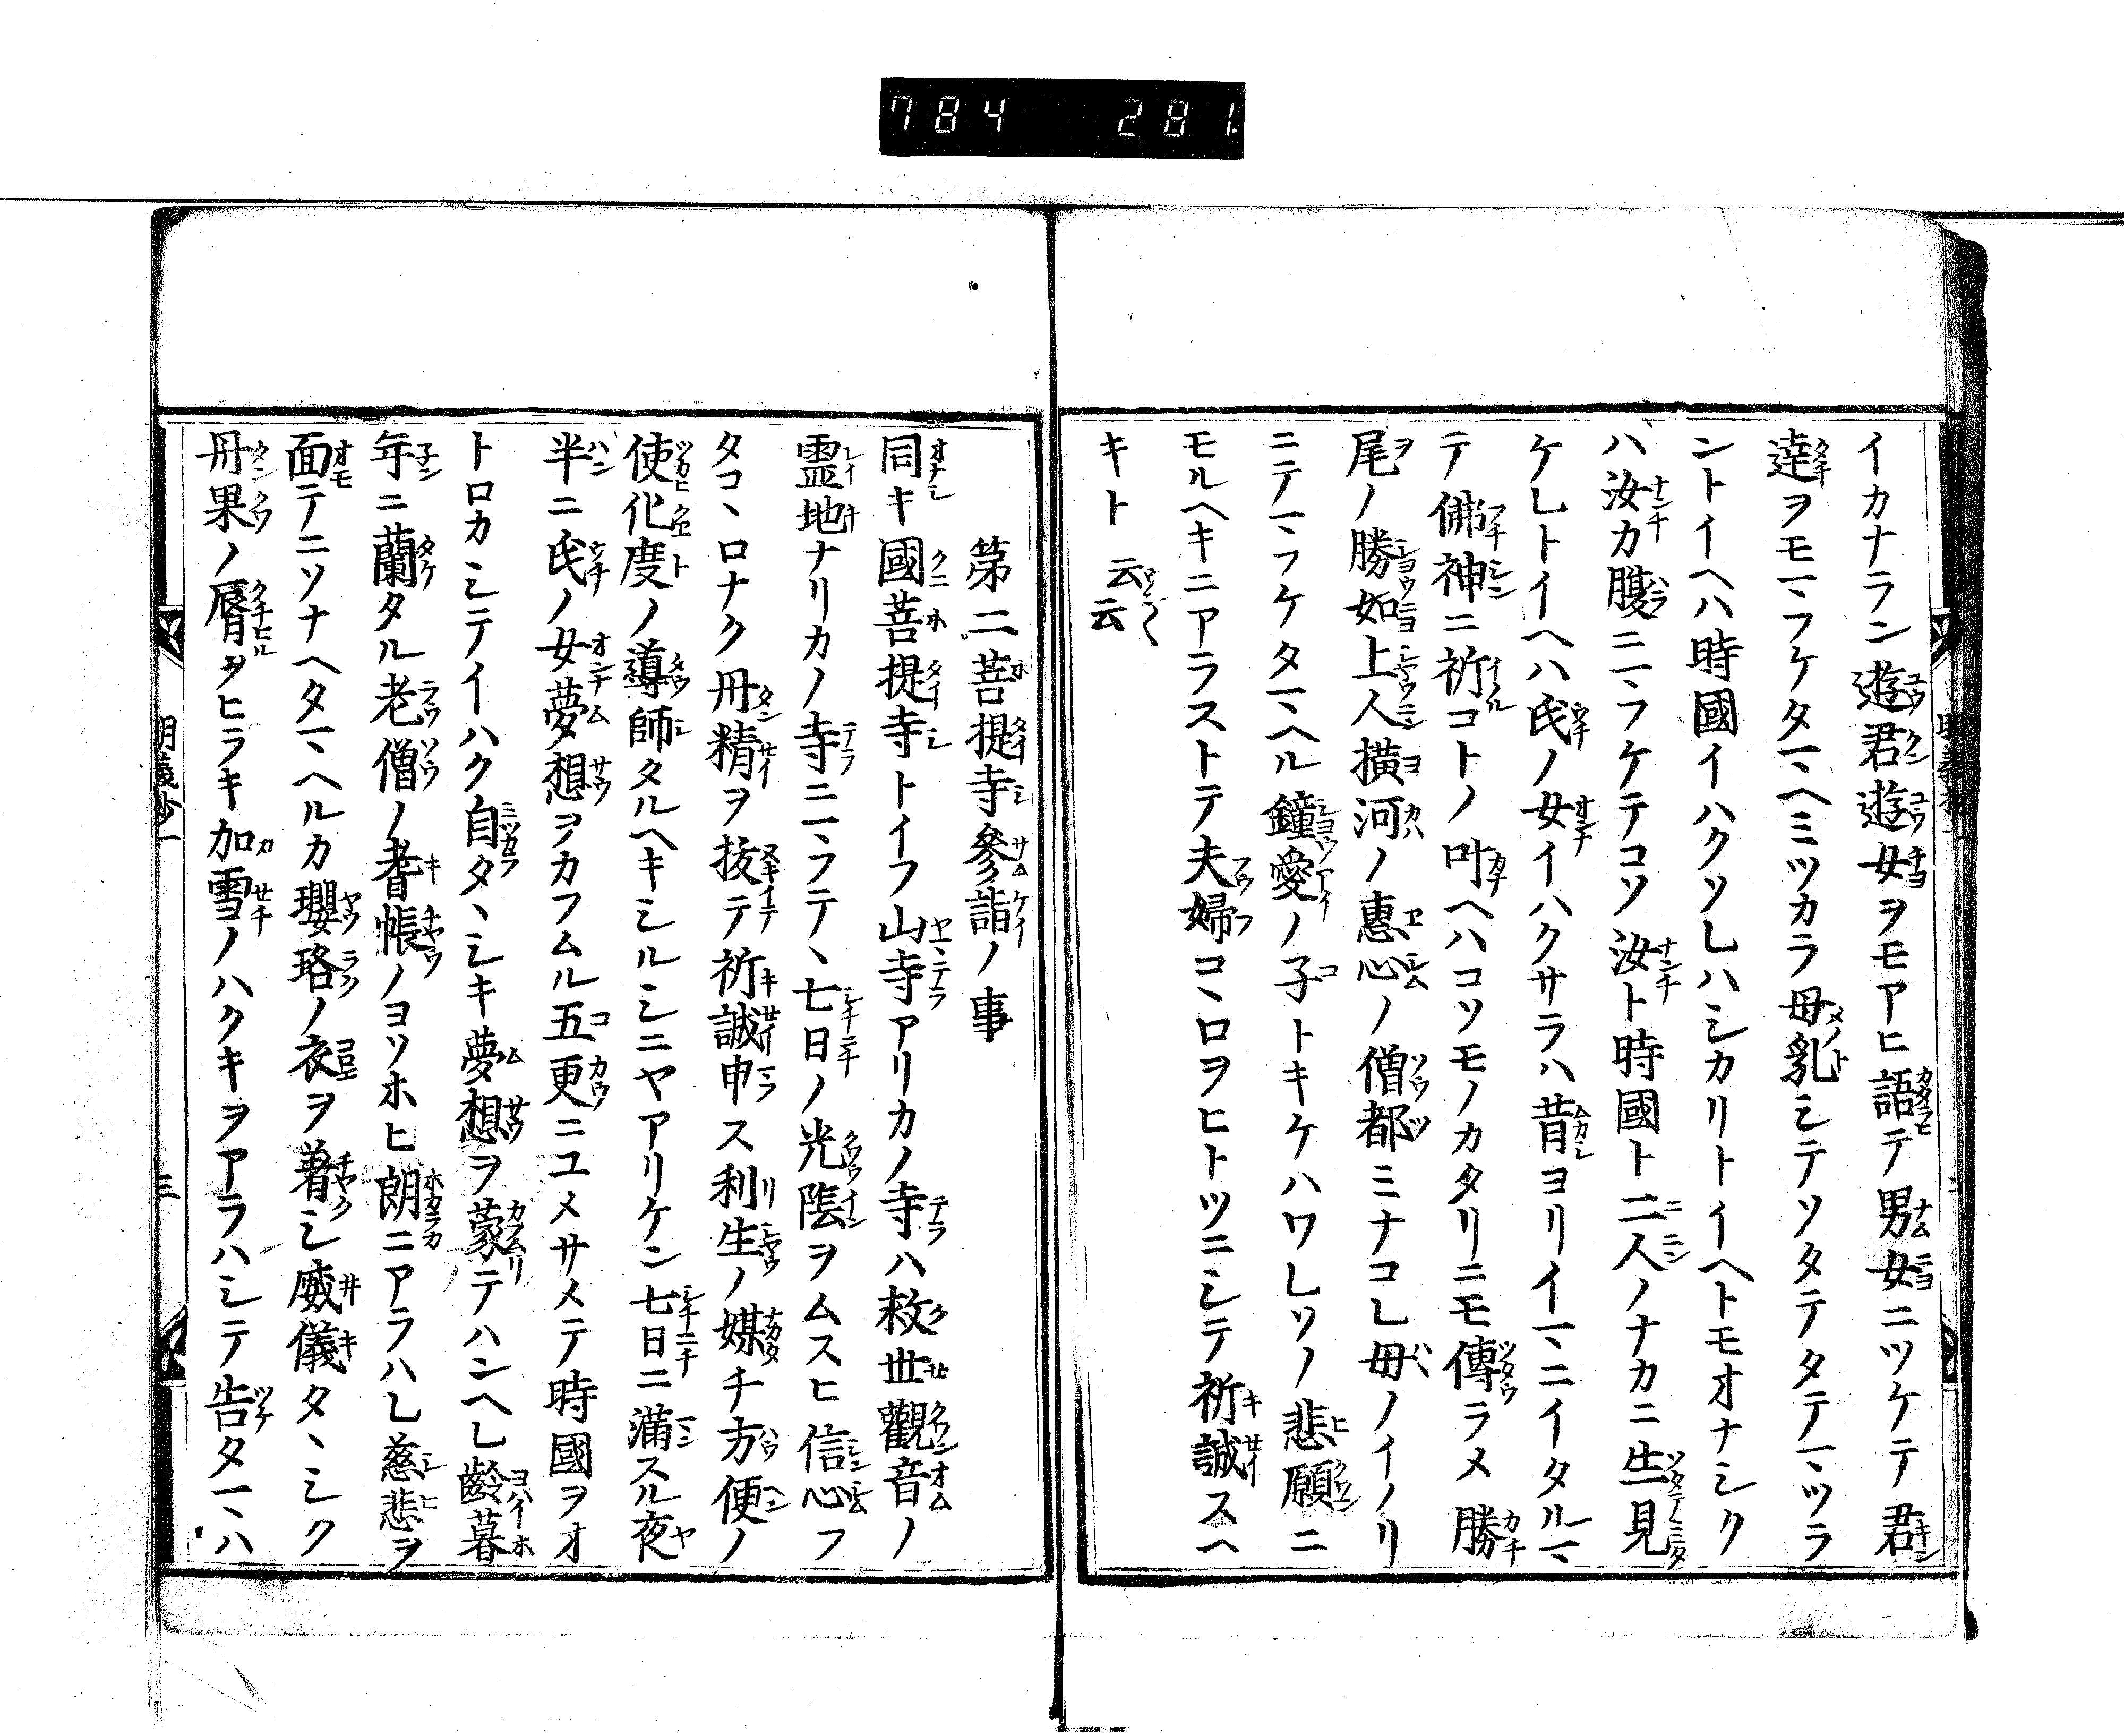 784 281.
イカナラン遊君遊女ヲモアヒ語テ男女ニツケテ君
達ヲモマフケタマヘミツカラ母乳シテソタテタテマツラ
ントイヘハ時國イハクソレハシカリトイヘトモオナシク
ハ汝カ腹ニマフケテコソ汝ト時國ト二人ノナカニ生見
ケレトイヘハ氏ノ女イハクサラハ昔ヨリイマニイタルマ
テ佛神ニ祈コトノ叶ヘハコソモノカタリニモ傳ラメ勝
尾ノ勝如上人横河ノ惠心ノ僧都ミナコレ母ノイノリ
ニテマフケタマヘル鐘愛ノ子トキケハワレソノ悲願ニ
モルヘキニアラストテ夫婦コヽロヲヒトツニシテ祈誠スヘ
キト云云
第二菩提寺參詣ノ事
同キ國菩提寺トイフ山寺アリカノ寺ハ救世觀音ノ
霊地ナリカノ寺ニマフテヽ七日ノ光陰ヲムスヒ信心フ
タコヽロナク丹精ヲ抜テ祈誠申ス利生ノ媒チ方便ノ
使化度ノ導師タルヘキシルシニヤアリケン七日ニ満スル夜
半ニ氏ノ女夢想ヲカフムル五更ニユメサメテ時國ヲオ
トロカシテイハク自タヽシキ夢想ヲ蒙テハンヘレ齢暮
年ニ蘭タル老僧ノ耆帳ノヨソホヒ朗ニアラハレ慈悲ヲ
面テニソナヘタマヘルカ瓔珞ノ衣ヲ着シ威儀タヽシク
丹果ノ脣ヲヒラキ加雪ノハクキヲアラハシテ告タマハ
明義抄一
三